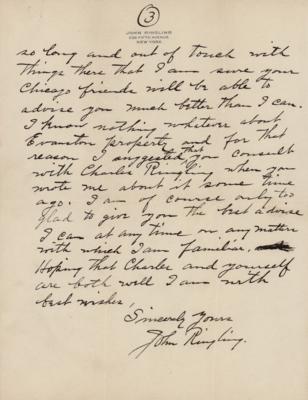 3
JOHN RINGLING
NEW YORK
so long and out of touch with
things there that I am sure your
Chicago friends will be able to
advise you much better than I can.
I know nothing whatever about
Evanston property and for that
reason I suggested that you consult
with Charles Ringling when you
wrote me about it some time
ago. I am of course only too
Glad to give you the best advise
I can at any time on any matters
with which I am familiar.
Hoping that Charles and yourself
are both well I am with
best wishes,
Sincerely Yours
John Ringling.